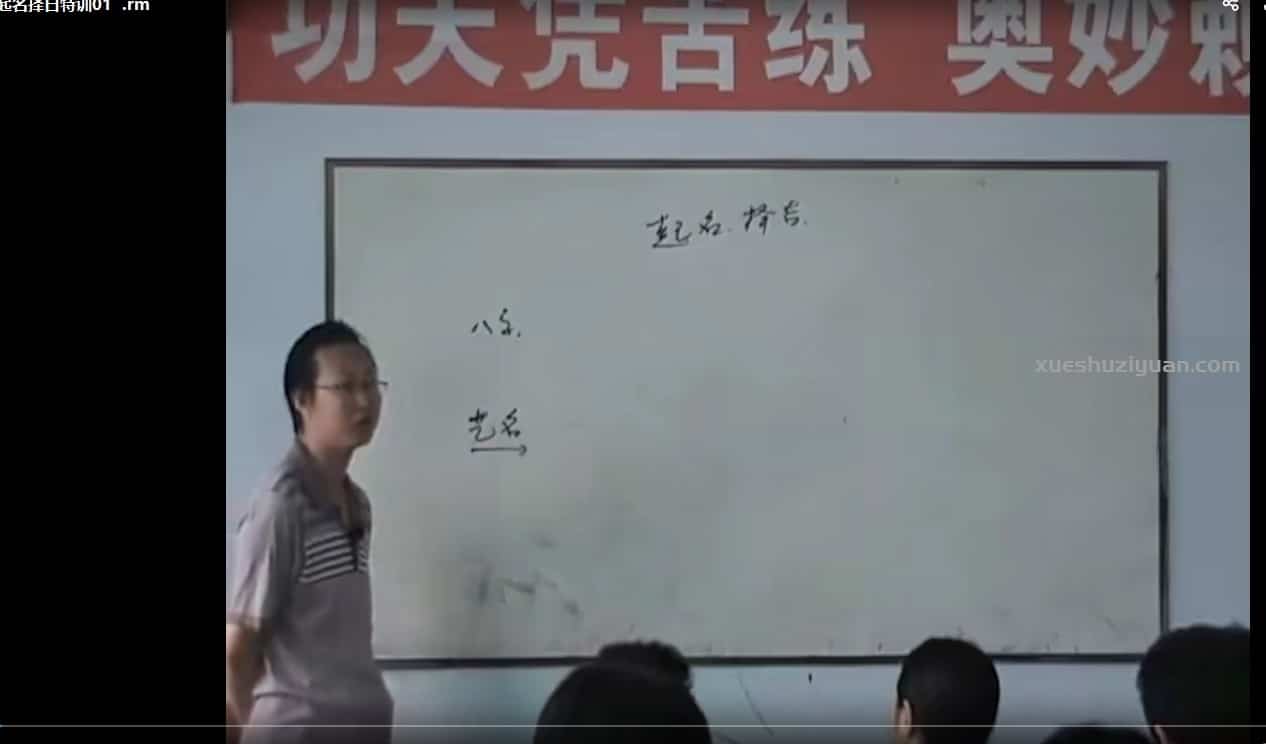 起名择日特训01 .rm
功夫凭苦练 奥妙赖
起名.择吉.
xueshuziyuan.com
八字.
艺名